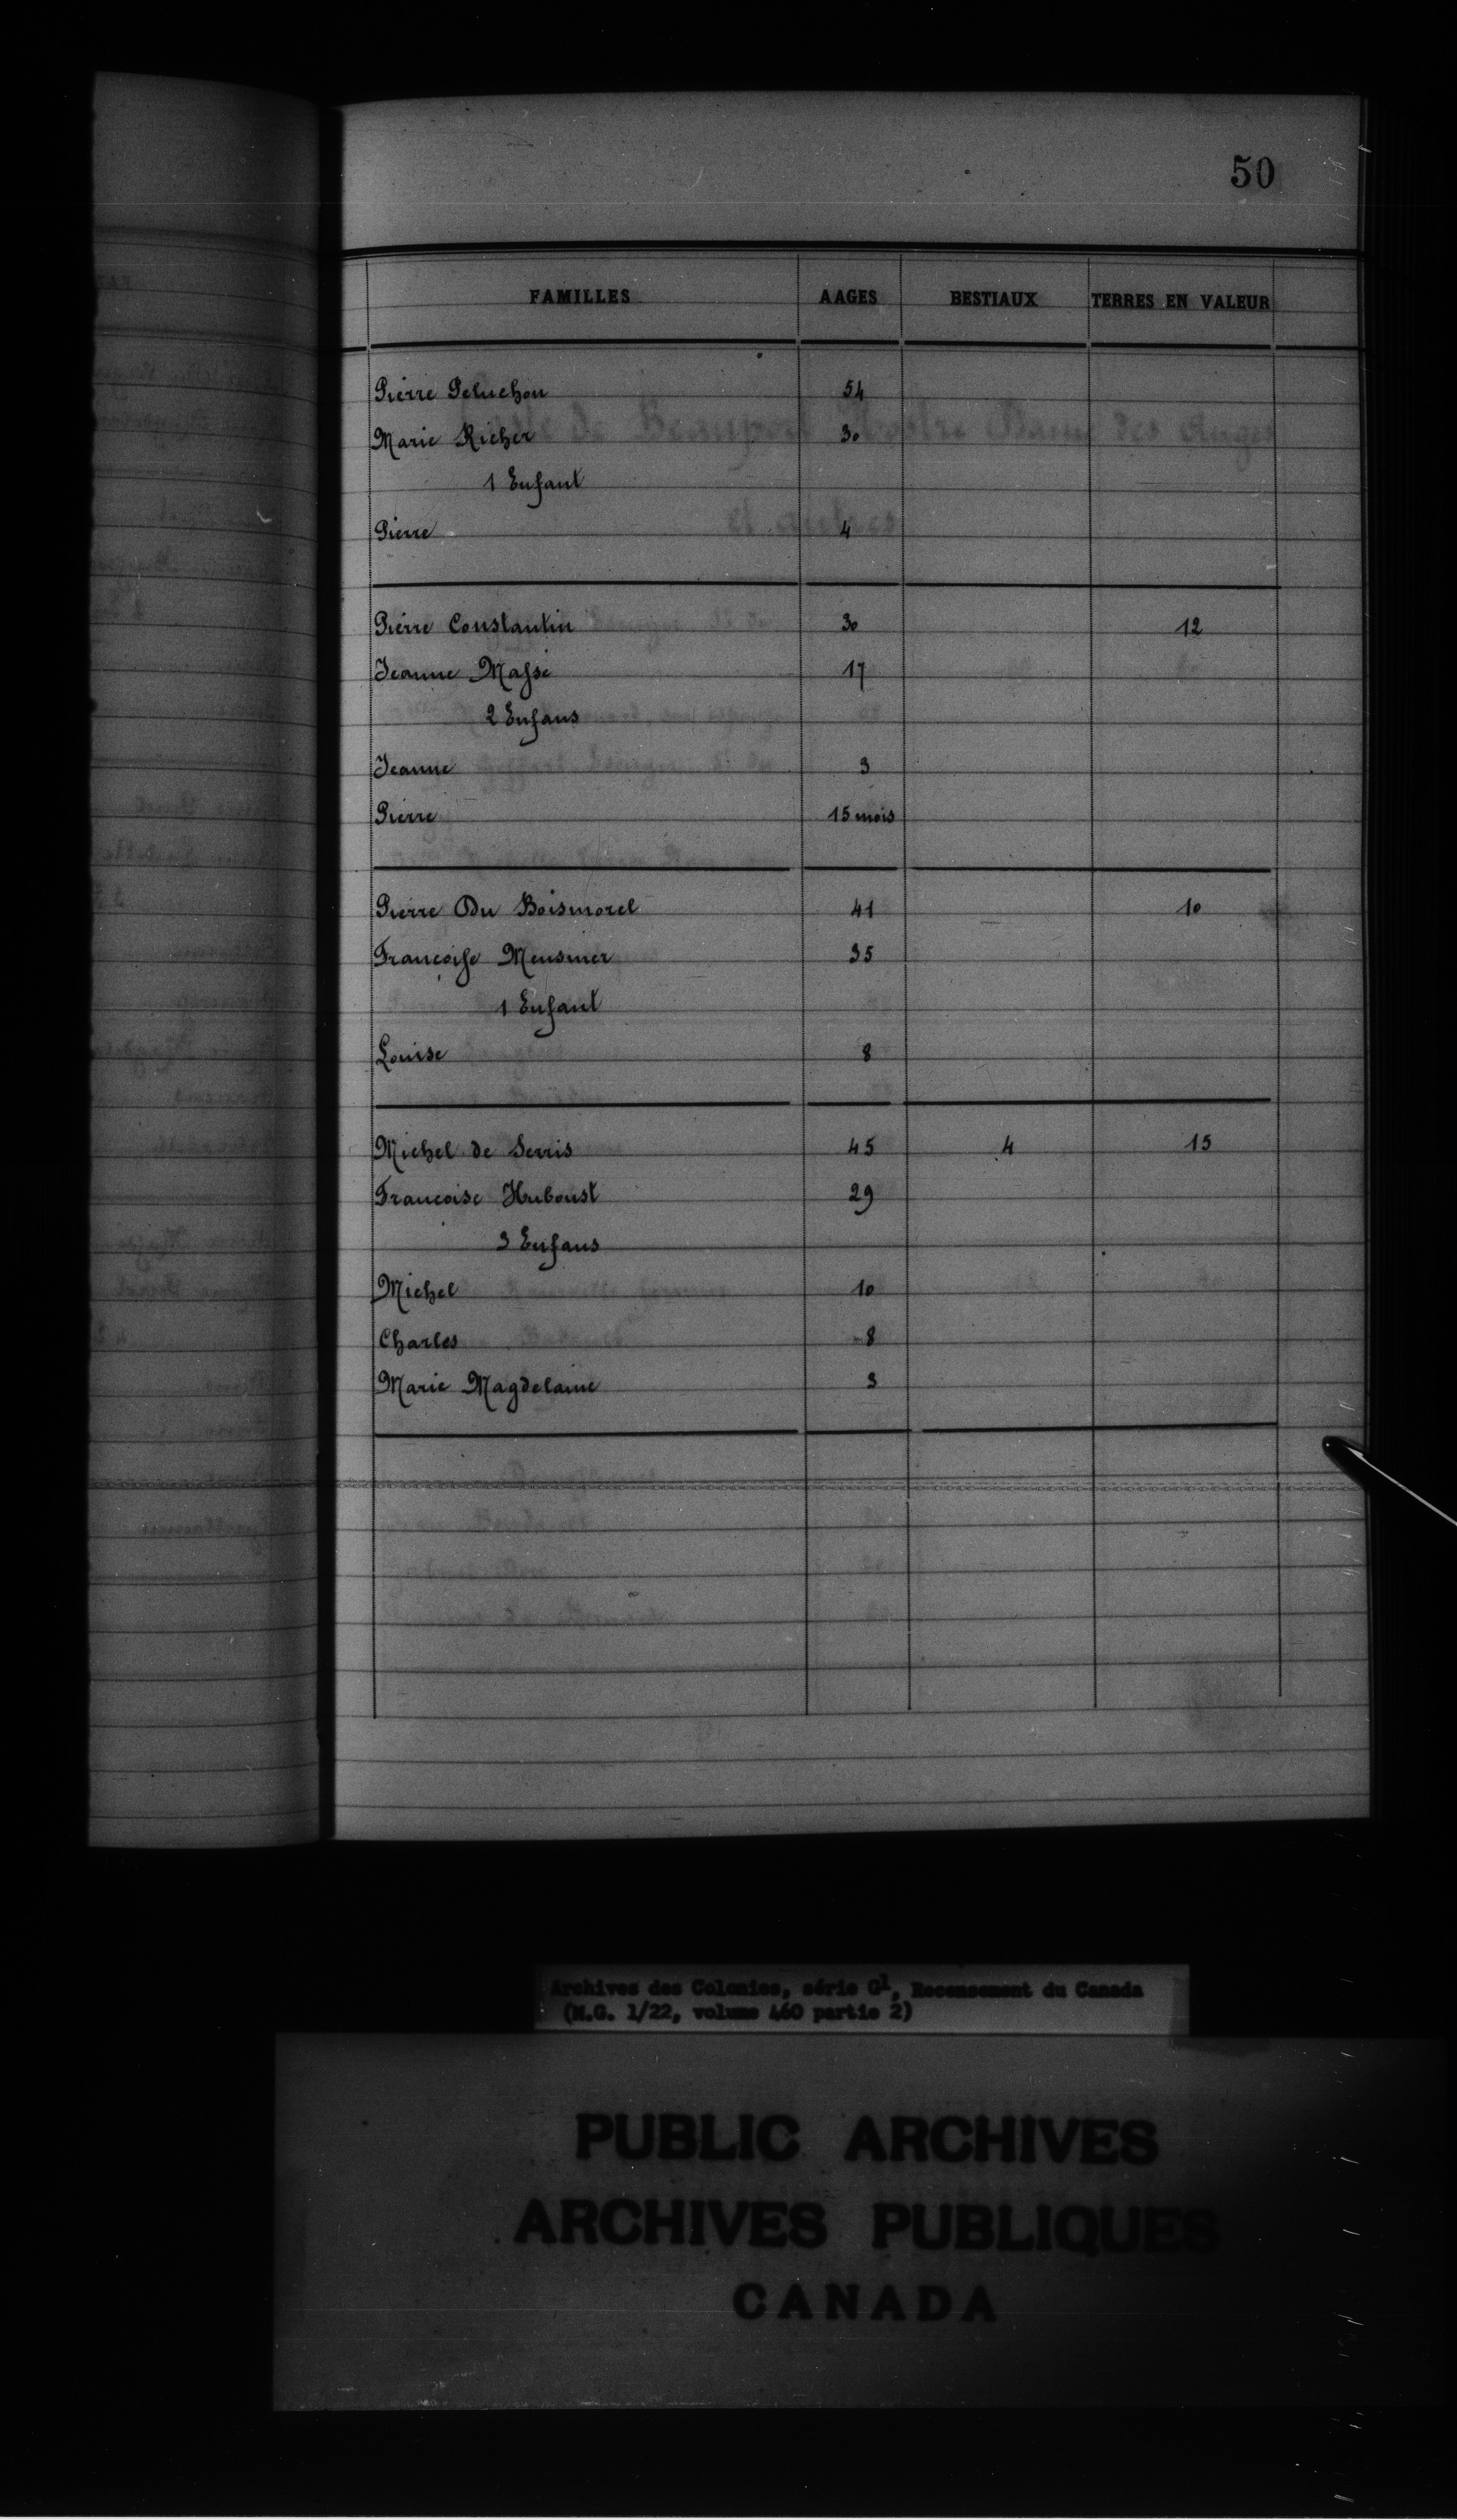 50
FAMILLES AAGES BESTIAUX TERRES EN VALEUR
Pierre Peluchon 54
Marie Richer 30
1 Enfant
Pierre 4
Pierre Constantin 30 12
Jeanne Masse 17
2 Enfans
Jeanne 3
Pierre 15 mois
Pierre Du Boismorel 41 10
Francoise Meusnier 35
1 Enfant
Louise 8
Michel de Serris 45 4 15
Francoise Huboust 29
3 Enfans
Michel 10
Charles 8
Marie Magdelaine 3
Archives des Colonies, série G1, Recensement du Canada
(M.G. 1/22, volume 460 partie 2)
PUBLIC ARCHIVES
ARCHIVES PUBLIQUES
CANADA